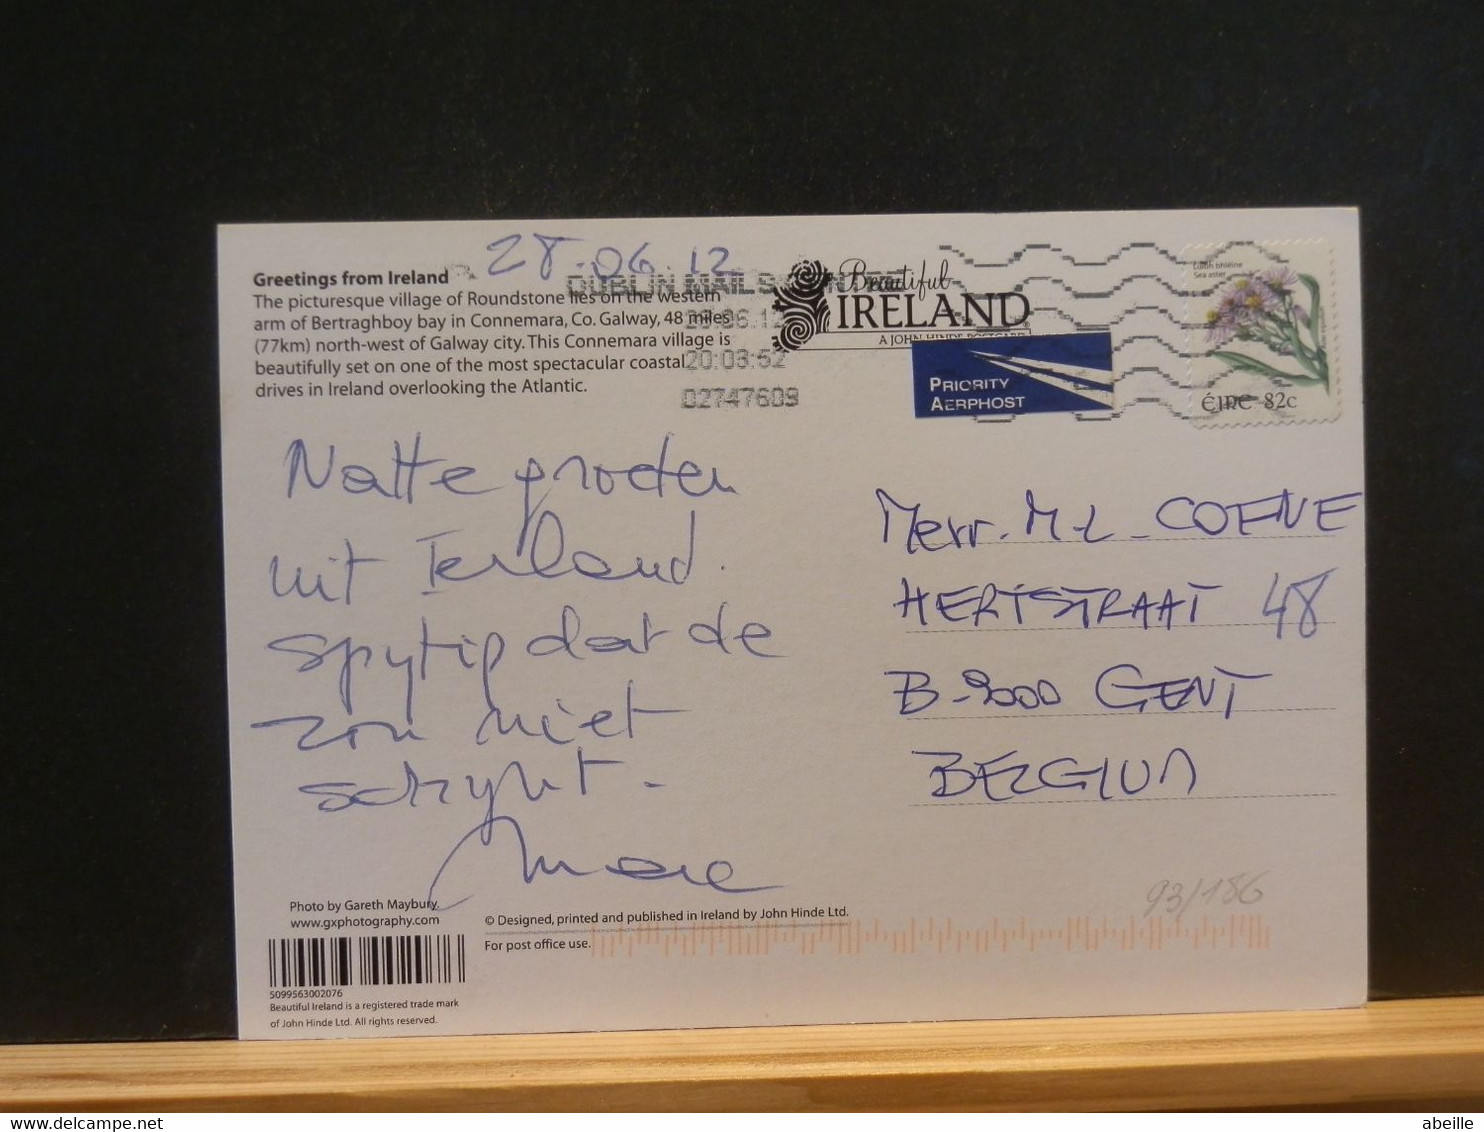 28.06.12
Greetings from Ireland
The picturesque village of Roundstone lies on the western
arm of Bertraghboy bay in Connemara, Co. Galway, 48 miles
(77km) north-west of Galway city. This Connemara village is
beautifully set on one of the most spectacular coastal
drives in Ireland overlooking the Atlantic.
DUBLIN MAILS CENTRE
28.06.12
20:03:52
02747609
Beautiful
IRELAND
A JOHN HINDE POSTCARD
PRIORITY
AERPHOST
Luibh bhléine
Sea aster
ÉIRE 82c
Natte groeten
uit Ierland.
spijtig dat de
zon niet
schijnt.
Marc
Merr. M-L. COENE
HERTSTRAAT 48
B-9000 GENT
BELGIUM
93/186
Photo by Gareth Maybury.
www.gxphotography.com
© Designed, printed and published in Ireland by John Hinde Ltd.
For post office use.
5099563002076
Beautiful Ireland is a registered trade mark
of John Hinde Ltd. All rights reserved.
abeille